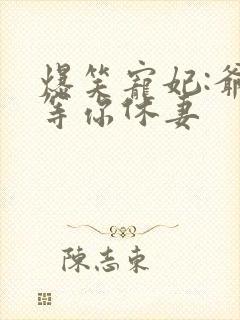 爆笑寵妃:爺
等你休妻
陳志東